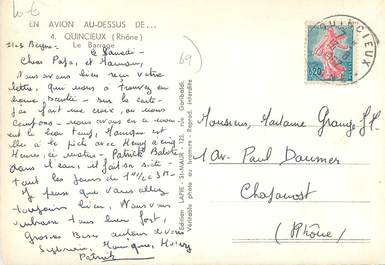 10 €
EN AVION AU-DESSUS DE...
4. QUINCIEUX (Rhône)
Le Barrage
QUINCIEUX
69)
Samedi-
Chers Papa, et Maman,
Nous avons bien reçu votre
lettre, qui nous a trouvés en
bonne santé - sur la carte
j'ai fait une croix, où nous
campons - nous avons en ce moment
le beau temps, Monique est
allée à la pêche avec Henry à
heures, ce matin - Patrick
dans l'eau, il fait sa sieste -
tout les jours de
Je pense que vous allez
toujours bien, Nous vous
embrassons tous bien fort,
Gros Bises autour de vous
Sylvain, Monique, Henry
Patrick
Edition LAPIE - St-MAUR - 125, rue Garibaldi.
Véritable photo au bromure - Reprod. interdite
0,20
Monsieur, Madame Grange J-H
1 Av. Paul Doumer
Chaponost
(Rhône)